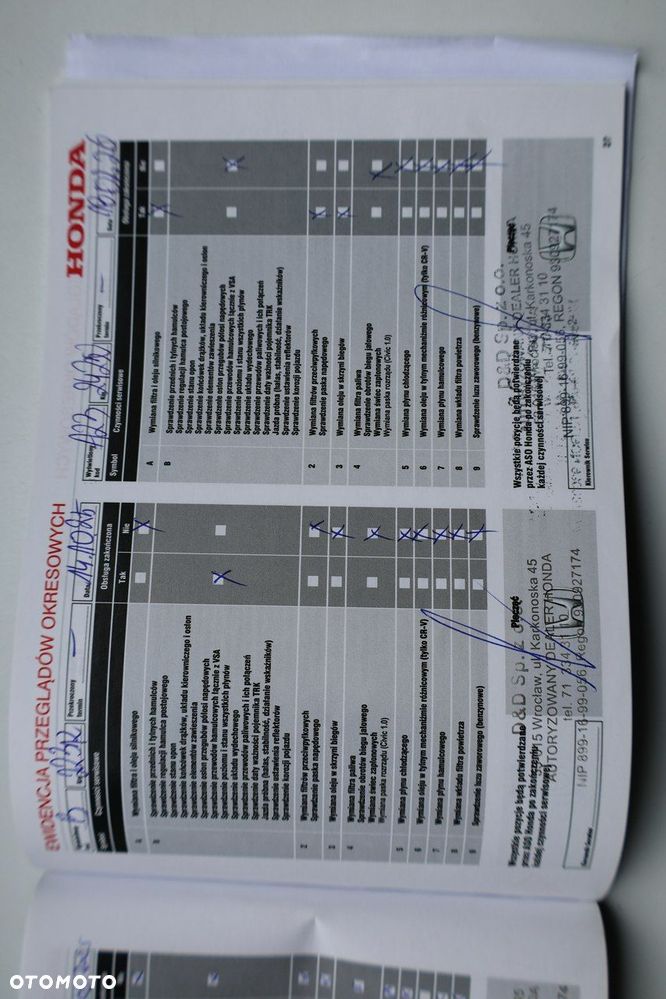 EWIDENCJA PRZEGLĄDÓW OKRESOWYCH
HONDA
Przekroczony
termin
Data
14.10.25
Obsługa zakończona
Tak
Nie
A
Wymiana filtra i oleju silnikowego
B
Sprawdzenie przednich i tylnych hamulców
Sprawdzenie regulacji hamulca postojowego
Sprawdzenie stanu opon
Sprawdzenie końcówek drążków, układu kierowniczego i osłon
Sprawdzenie elementów zawieszenia
Sprawdzenie osłon przegubów półosi napędowych
Sprawdzenie przewodów hamulcowych łącznie z VSA
Sprawdzenie poziomu i stanu wszystkich płynów
Sprawdzenie układu wydechowego
Sprawdzenie przewodów paliwowych i ich połączeń
Sprawdzenie daty ważności pojemnika TRK
Jazda próbna (hałas, stabilność, działanie wskaźników)
Sprawdzenie ustawienia reflektorów
Sprawdzenie korozji pojazdu
2
Wymiana filtrów przeciwpyłkowych
Sprawdzenie paska napędowego
3
Wymiana oleju w skrzyni biegów
4
Wymiana filtra paliwa
Sprawdzenie obrotów biegu jałowego
Wymiana świec zapłonowych
Wymiana paska rozrządu (Civic 1.0)
5
Wymiana płynu chłodzącego
6
Wymiana oleju w tylnym mechanizmie różnicowym (tylko CR-V)
7
Wymiana płynu hamulcowego
8
Wymiana wkładu filtra powietrza
9
Sprawdzenie luzu zaworowego (benzynowe)
Wszystkie pozycje będą potwierdzane
przez ASO Honda po zakończeniu
każdej czynności serwisowej
Pieczęć
D&D Sp. z o.o.
Wrocław, ul. Karkonoska 45
AUTORYZOWANY DEALER HONDA
tel. 71 334 31 10
NIP 899-16-99-056, Regon 930927174
Wyświetlony
kod
Przekroczony
termin
Data
Symbol
Czynności serwisowe
Obsługa zakończona
Tak
Nie
A
Wymiana filtra i oleju silnikowego
B
Sprawdzenie przednich i tylnych hamulców
Sprawdzenie regulacji hamulca postojowego
Sprawdzenie stanu opon
Sprawdzenie końcówek drążków, układu kierowniczego i osłon
Sprawdzenie elementów zawieszenia
Sprawdzenie osłon przegubów półosi napędowych
Sprawdzenie przewodów hamulcowych łącznie z VSA
Sprawdzenie poziomu i stanu wszystkich płynów
Sprawdzenie układu wydechowego
Sprawdzenie przewodów paliwowych i ich połączeń
Sprawdzenie daty ważności pojemnika TRK
Jazda próbna (hałas, stabilność, działanie wskaźników)
Sprawdzenie ustawienia reflektorów
Sprawdzenie korozji pojazdu
2
Wymiana filtrów przeciwpyłkowych
Sprawdzenie paska napędowego
3
Wymiana oleju w skrzyni biegów
4
Wymiana filtra paliwa
Sprawdzenie obrotów biegu jałowego
Wymiana świec zapłonowych
Wymiana paska rozrządu (Civic 1.0)
5
Wymiana płynu chłodzącego
6
Wymiana oleju w tylnym mechanizmie różnicowym (tylko CR-V)
7
Wymiana płynu hamulcowego
8
Wymiana wkładu filtra powietrza
9
Sprawdzenie luzu zaworowego (benzynowe)
Wszystkie pozycje będą potwierdzane
przez ASO Honda po zakończeniu
każdej czynności serwisowej
Kierownik Serwisu
Pieczęć
D&D Sp. z o.o.
Karkonoska 45
DEALER
REGON 930927174
27
OTOMOTO